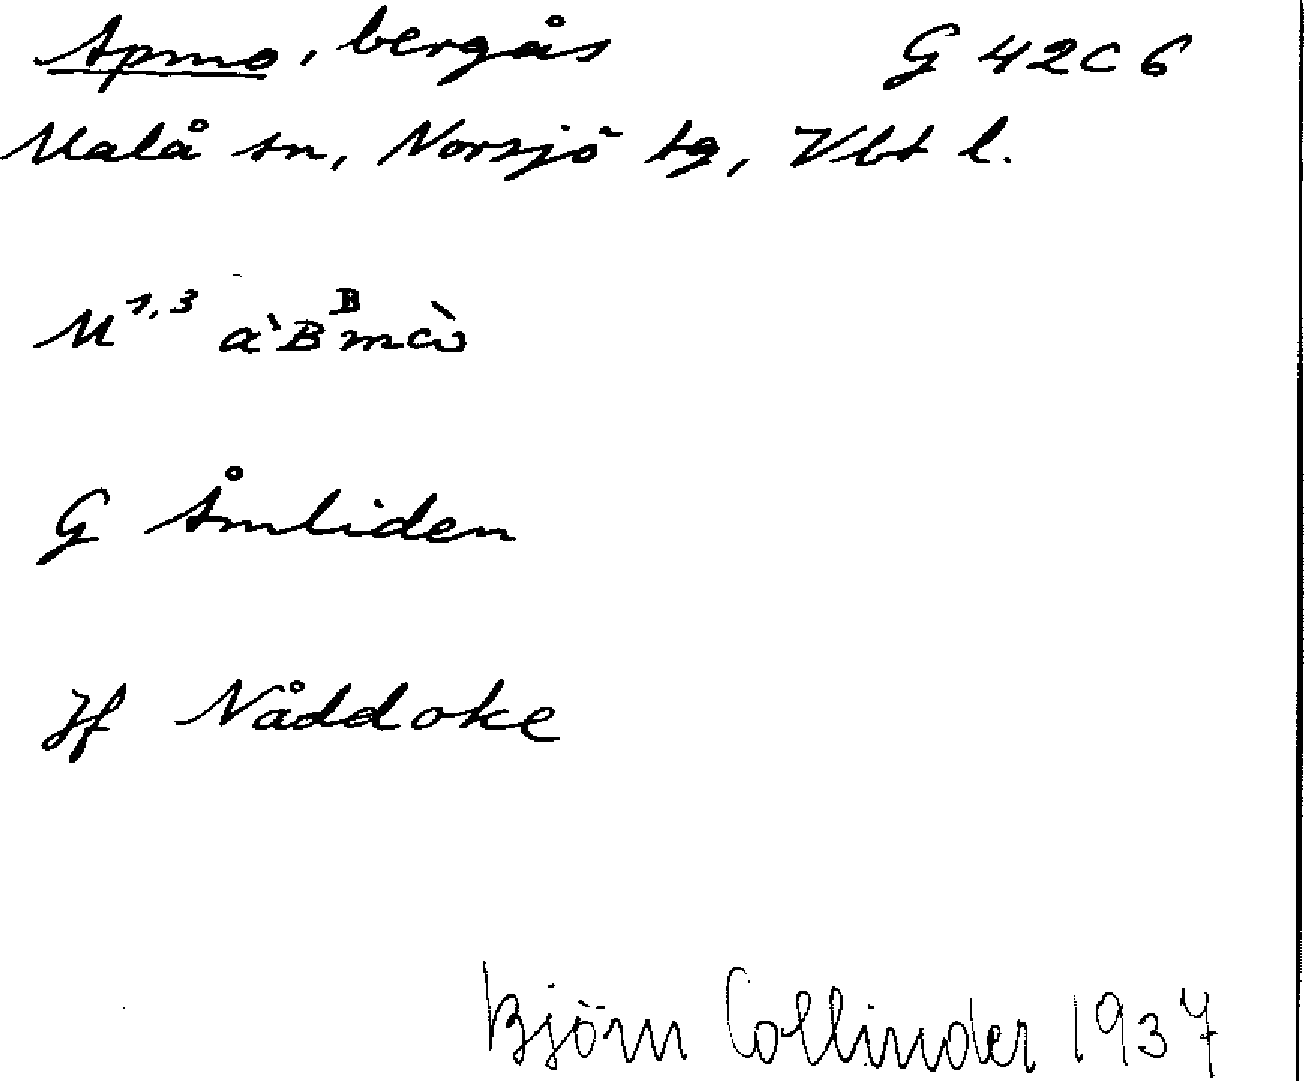 Apmo, bergås G 42C6
Malå sn, Norsjö tg, Vbt l.
M 1,3 àBᴮmcὼ
G Åmliden
Jf Nåddoke
Björn Collinder 1937